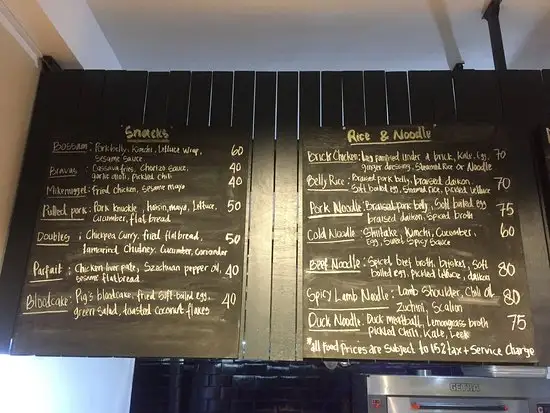 "Snacks"
Bossam: Porkbelly, Kimchi, Lettuce wrap, 60
Sesame Sauce
Bravas: Cassava fries, Chorizo Sauce, 40
garlic aioli, pickled Chili
Mikenugget: Fried chicken, sesame mayo 40
Pulled pork: Pork knuckle, hoisin mayo, Lettuce, 50
Cucumber, flatbread
Doubles: Chickpea Curry, fried flatbread, 50
tamarind Chutney, Cucumber, Coriander
Parfait: Chicken liver pate, Szechuan pepper oil, 40
sesame flatbread
Bloodcake: Pig's bloodcake, fried soft-boiled egg, 40
green salad, toasted coconut flakes
"Rice & Noodle"
Brick Chicken: Leg pampered under a brick, Kale, Egg, 70
ginger dressing, Steamed Rice or Noodle
Belly Rice: Braised pork belly, braised daikon, 70
Soft boiled egg, Steamed rice, pickled lettuce
Pork Noodle: Braised pork belly, Soft boiled egg 75
braised daikon, Spiced broth
Cold Noodle: Shiitake, Kimchi, Cucumber, 60
Egg, Sweet Spicy Sauce
Beef Noodle: Spiced beef broth, brisket, Soft 80
boiled egg, pickled lettuce, daikon
Spicy Lamb Noodle: Lamb Shoulder, Chili oil 80
Zuchini, Scalion
Duck Noodle: Duck meatball, Lemongrass broth 75
pickled chili, Kale, Leek
"all Food Prices are Subject to 15% tax + Service Charge
GETRA